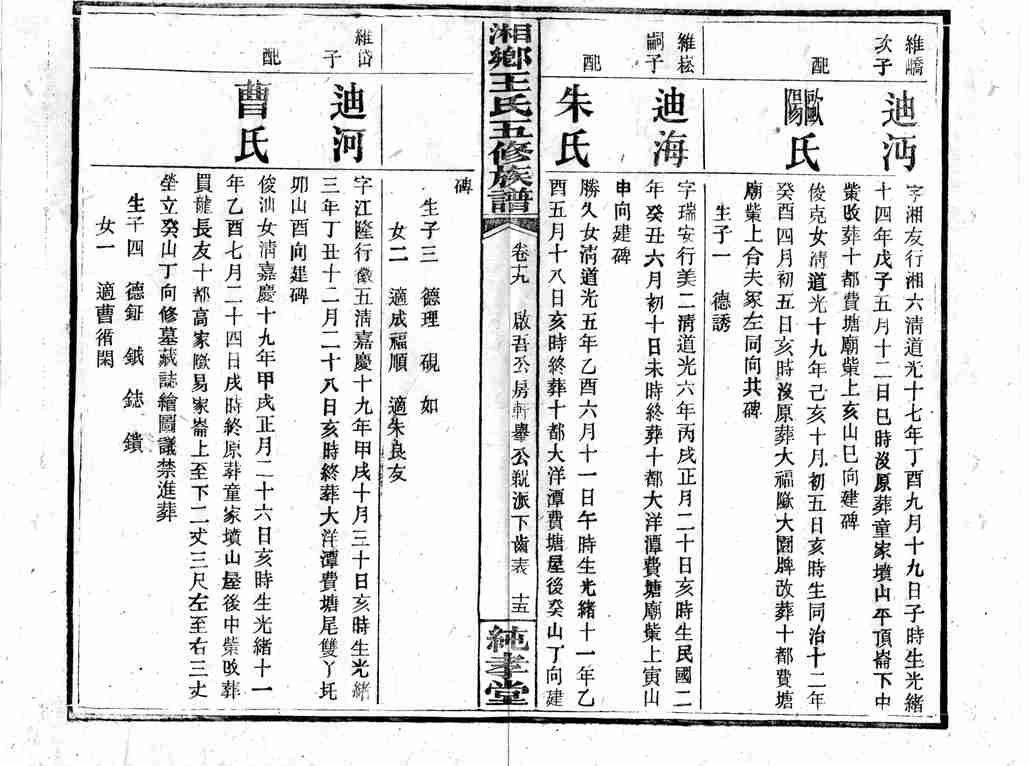 維嶠
次子
配
迪沔
歐陽氏
字湘友行湘六清道光十七年丁酉九月十九日子時生光緒
十四年戊子五月十二日巳時沒原葬童家墳山平頂崙下中
葬十都費塘廟柴上亥山巳向建碑
俊克女清道光十九年己亥十月初五日亥時生同治十二年
癸酉四月初五日亥時沒原葬大福歐大圍牌改葬十都費塘
廟柴上合夫冢左同向共碑
生子一 德誘
維崧
嗣子
配
迪海
朱氏
字瑞安行美二清道光六年丙戌正月二十日亥時生民國二
年癸丑六月初十日未時終葬十都大洋潭費塘廟柴上寅山
申向建碑
勝久女清道光五年乙酉六月十一日午時生光緒十一年乙
酉五月十八日亥時終葬十都大洋潭費塘屋後癸山丁向建
湘鄉王氏五修族譜
卷十九
啟吾公房軒舉公親派下齒表 十五
純孝堂
碑
生子三 德理 硯 如
女二 適成福順 適朱良友
維岱
子
配
迪河
曹氏
字江隆行徽五清嘉慶十九年甲戌十月三十日亥時生光緒
三年丁丑十二月二十八日亥時終葬大洋潭費塘尾雙丫圫
卯山酉向建碑
俊汕女清嘉慶十九年甲戌正月二十六日亥時生光緒十一
年乙酉七月二十四日戌時終原葬童家墳山屋後中柴改葬
買龍長友十都高家歐易家崙上至下二丈三尺左至右三丈
塋立癸山丁向修墓藏誌繪圖議禁進葬
生子四 德鉦 鉞 鋕 鑌
女一 適曹循閑